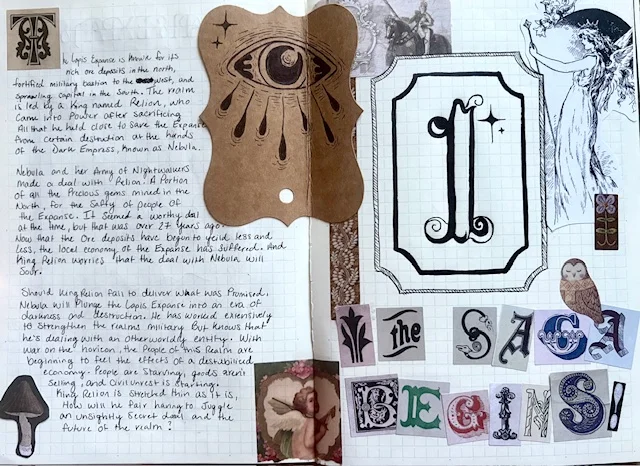 The Lapis Expanse is known for its
rich ore deposits in the north,
fortified military bastion to the West, and
Sprawling capital in the South. The realm
is led by a King named Relion, who
Came into Power after sacrificing
All that he held close to save the Expanse
from certain destruction at the hands
of the Dark Empress, known as Nebula.
Nebula and her Army of Nightwalkers
made a deal with Relion. A Portion
of all the Precious gems mined in the
North, for the Safty of people of
the Expanse. It Seemed a worthy deal
at the time, but that was over 27 years ago.
Now that the Ore deposits have begun to yeild less and
less, the local economy of the Expanse has suffered. And
King Relion worries that the deal with Nebula will
Sour.
Should King Relion fail to deliver what was Promised,
Nebula will Plunge the Lapis Expanse into an era of
darkness and destruction. He has worked extensively
to Strengthen the realms military But knows that
he's dealing with an otherworldly entity. With
war on the horizon, the People of this Realm are
beginning to feel the effects of a destabilised
economy. People are Starving, goods aren't
Selling, and Civil unrest is starving.
King Relion is stretched thin as it is,
How will he fair having to Juggle
an unsightly secret deal and the
future of the realm?
1
the SAGA
BEGINS!